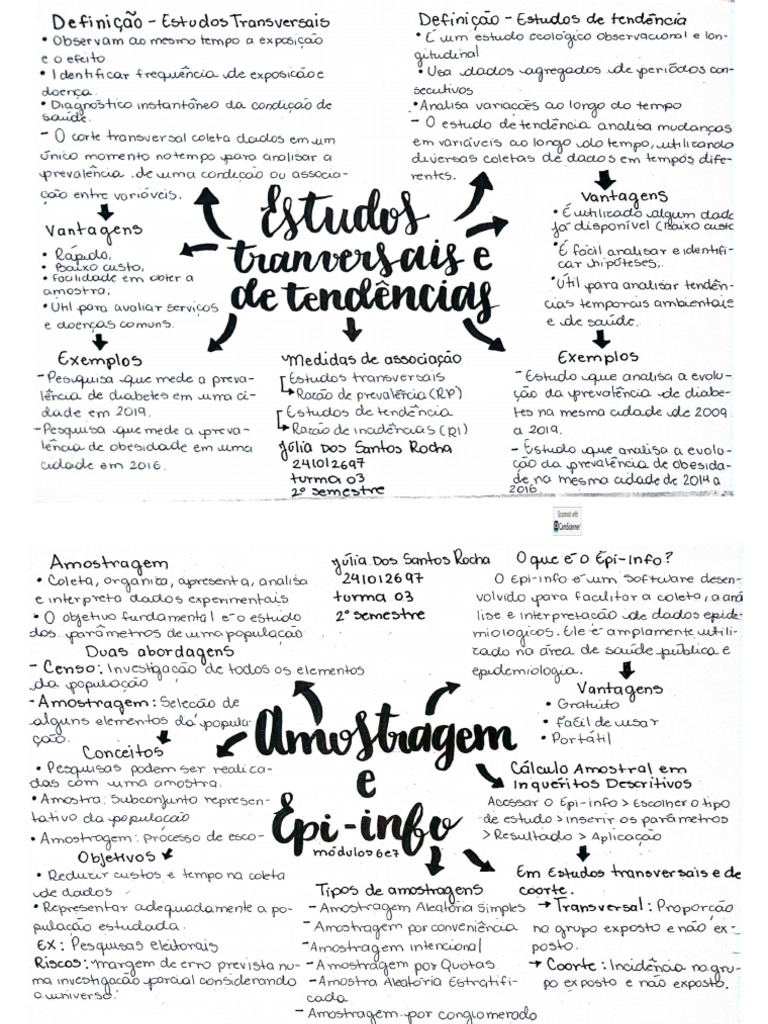 Definição - Estudos Transversais
• Observam ao mesmo tempo a exposição
e o efeito
• Identificar frequência de exposição e
doença.
• Diagnóstico instantâneo da condição de
saúde.
- O corte transversal coleta dados em um
único momento no tempo para analisar a
prevalência de uma condição ou associa-
ção entre variáveis.
Vantagens
• Rápido,
• Baixo custo,
• Facilidade em obter a
amostra,
• Útil para avaliar serviços
e doenças comuns.
Exemplos
- Pesquisa que mede a preva-
lência de diabetes em uma ci-
dade em 2019.
- Pesquisa que mede a preva-
lência de obesidade em uma
cidade em 2016.
Estudos
tranversais e
de tendências
Medidas de associação
Estudos transversais
Razão de prevalência (RP)
Estudos de tendência
Razão de incidências (RI)
Júlia Dos Santos Rocha
241012697
turma 03
2º semestre
Definição - Estudos de tendência
• É um estudo ecológico observacional e lon-
gitudinal
• Usa dados agregados de períodos con-
secutivos
• Analisa variações ao longo do tempo
- O estudo de tendência analisa mudanças
em variáveis ao longo do tempo, utilizando
diversas coletas de dados em tempos dife-
rentes.
Vantagens
• É utilizado algum dado
já disponível (Baixo custo
• É fácil analisar e identifi-
car hipóteses;
• Útil para analisar tendên-
cias temporais ambientais
e de saúde.
Exemplos
- Estudo que analisa a evolu-
ção da prevalência de diabe-
tes na mesma cidade de 2009
a 2019.
- Estudo que analisa a evolu-
ção da prevalência de obesida-
de na mesma cidade de 2014 a
2016.
Scanned with
CamScanner
Amostragem
• Coleta, organiza, apresenta, analisa
e interpreta dados experimentais
• O objetivo fundamental é o estudo
dos parâmetros de uma população
Duas abordagens
- Censo: Investigação de todos os elementos
da população
- Amostragem: Seleção de
alguns elementos da popula-
ção.
Conceitos
• Pesquisas podem ser realiza-
das com uma amostra.
• Amostra: Subconjunto represen-
tativo da população
• Amostragem: Processo de esco-
Objetivos
• Reduzir custos e tempo na coleta
de dados
• Representar adequadamente a po-
pulação estudada.
EX: Pesquisas eleitorais
Riscos: margem de erro prevista nu-
ma investigação parcial considerando
o universo.
Júlia Dos Santos Rocha
241012697
turma 03
2º semestre
Amostragem
e
Epi-info
módulos 6e7
Tipos de amostragens
- Amostragem Aleatória Simples
- Amostragem por conveniência
- Amostragem intencional
- Amostragem por Quotas
- Amostra Aleatória Estratifi-
cada
- Amostragem por conglomerado
O que é o Epi-info?
O Epi-info é um software desen-
volvido para facilitar a coleta, a aná
lise e interpretação de dados epide-
miologicos. Ele é amplamente utili-
zado na área de saúde pública e
epidemiologia.
Vantagens
• Gratuito
• facil de usar
• Portátil
Cálculo Amostral em
Inquéritos Descritivos
Acessar o Epi-info > Escolher o tipo
de estudo > inserir os parâmetros
> Resultado > Aplicação
Em Estudos transversais e de
coorte.
→ Transversal: Proporção
no grupo exposto e não ex-
posto.
→ Coorte: Incidência no gru-
po exposto e não exposto.